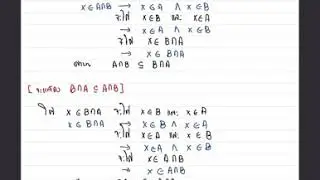 x∈A∩B → x∈A ∧ x∈B
จะได้ x∈B และ x∈A
→ x∈A ∧ x∈B
จะได้ x∈B∩A
→ x∈B∩A
A∩B ⊆ B∩A
[ B∩A ⊆ A∩B ]
ให้ x∈B∩A จะได้ x∈B และ x∈A
x∈B∩A → x∈B ∧ x∈A
จะได้ x∈A และ x∈B
→ x∈A ∧ x∈B
จะได้ x∈A∩B
→ x∈A∩B